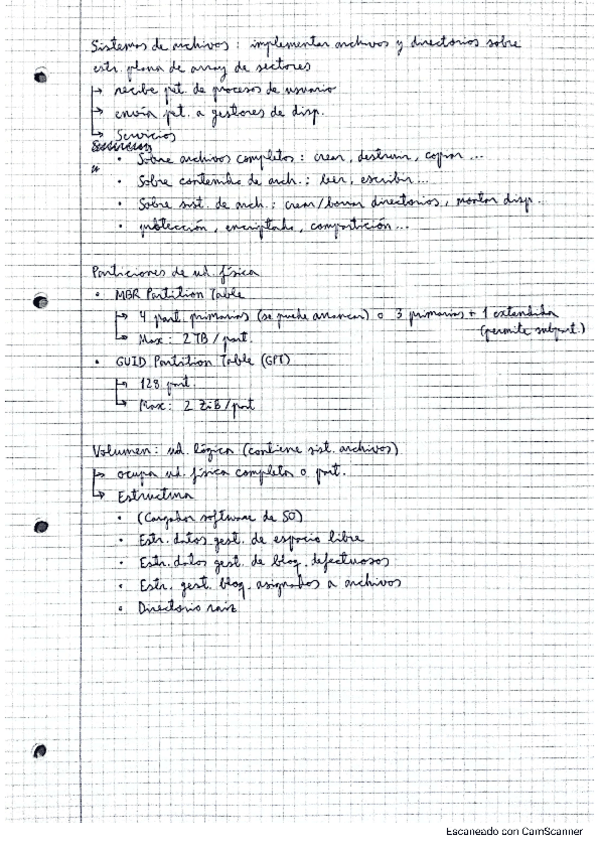 Sistemas de archivos: implementar archivos y directorios sobre
estr. plana de array de sectores
↳ recibe pet. de procesos de usuario
↳ envía pet. a gestores de disp.
↳ Servicios
• Sobre archivos completos: crear, destruir, copiar...
• Sobre contenido de arch.: leer, escribir...
• Sobre sist. de arch.: crear/borrar directorios, montar disp...
• protección, encriptado, compartición...
Particiones de ud. física
• MBR Partition Table
↳ 4 part. primarias (se puede arrancar) o 3 primarias + 1 extendida
(permite subpart.)
↳ Max: 2TB/part.
• GUID Partition Table (GPT)
↳ 128 part.
↳ Max: 2 ZiB/part
Volumen: ud. lógica (contiene sist. archivos)
↳ ocupa ud. física completa o part.
↳ Estructura
• (Cargador software de SO)
• Estr. datos gest. de espacio libre
• Estr. datos gest. de bloq. defectuosos
• Estr. gest. bloq. asignados a archivos
• Directorio raíz
Escaneado con CamScanner